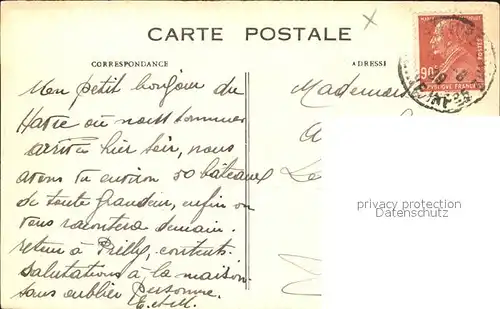 CARTE POSTALE
CORRESPONDANCE
ADRESSE
90c
POSTES
Mon petit bonjour du
Havre où nous sommes
arrivés hier soir, nous
avons vu environ 50 bateaux
de toute grandeur, enfin on
vous racontera demain
retour à Prilly, contents.
Salutations à la maison
sans oublier personne.
E. et M.
Mademois
privacy protection
Datenschutz